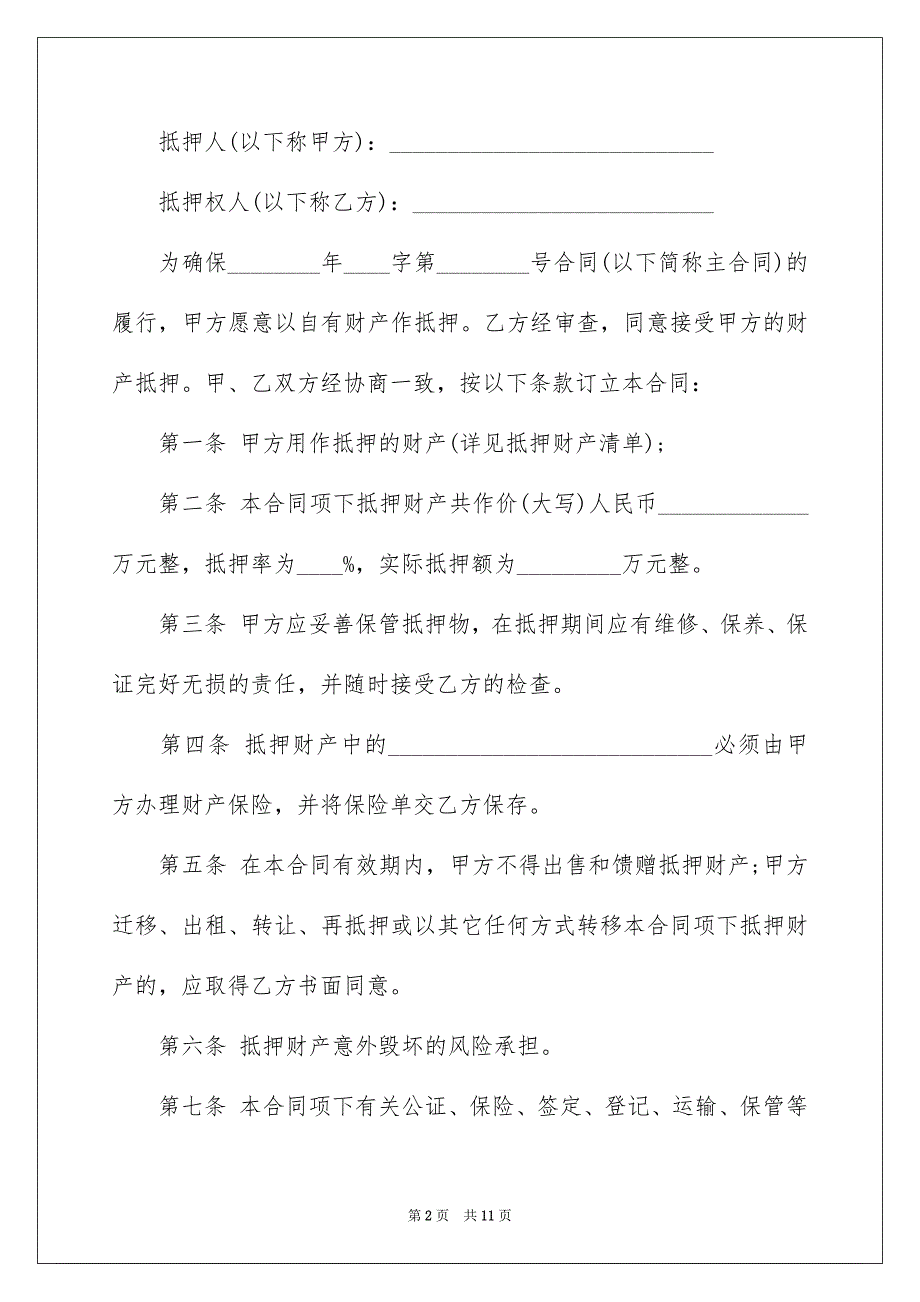 抵押人(以下称甲方)：____________________________
抵押权人(以下称乙方)：__________________________
为确保________年____字第________号合同(以下简称主合同)的
履行，甲方愿意以自有财产作抵押。乙方经审查，同意接受甲方的财
产抵押。甲、乙双方经协商一致，按以下条款订立本合同：
第一条 甲方用作抵押的财产(详见抵押财产清单);
第二条 本合同项下抵押财产共作价(大写)人民币_____________
万元整，抵押率为____%，实际抵押额为_________万元整。
第三条 甲方应妥善保管抵押物，在抵押期间应有维修、保养、保
证完好无损的责任，并随时接受乙方的检查。
第四条 抵押财产中的____________________________必须由甲
方办理财产保险，并将保险单交乙方保存。
第五条 在本合同有效期内，甲方不得出售和馈赠抵押财产;甲方
迁移、出租、转让、再抵押或以其它任何方式转移本合同项下抵押财
产的，应取得乙方书面同意。
第六条 抵押财产意外毁坏的风险承担。
第七条 本合同项下有关公证、保险、签定、登记、运输、保管等
第 2 页 共 11 页